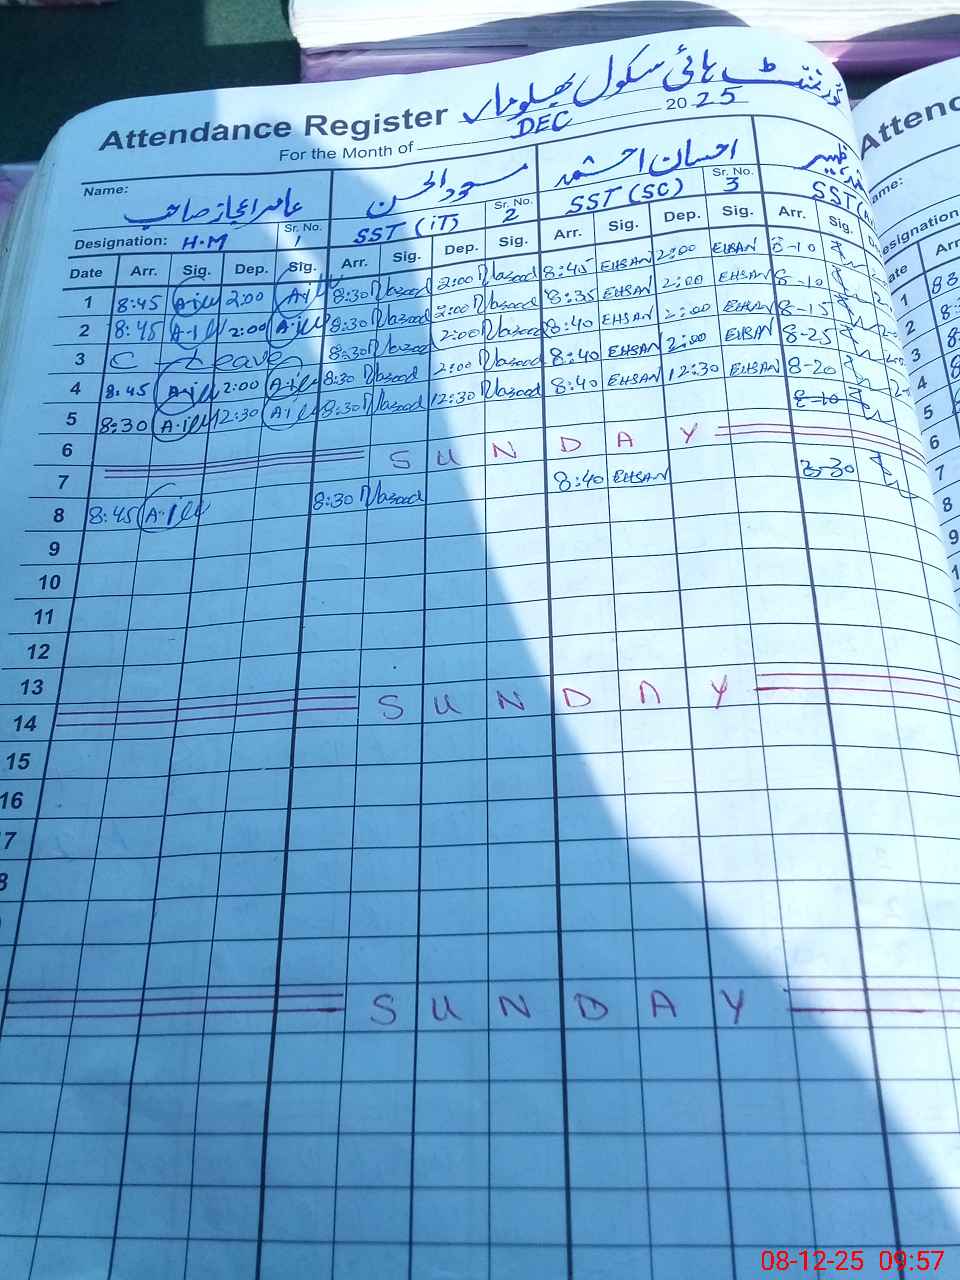 Attendance Register گورنمنٹ ہائی سکول
For the Month of DEC 2025
Name: عامر اعجاز صاحب مسعود الحسن احسان احمد
Designation: H.M Sr. No. 1 SST (IT) Sr. No. 2 SST (SC) Sr. No. 3 SST
Date Arr. Sig. Dep. Sig. Arr. Sig. Dep. Sig. Arr. Sig. Dep. Sig. Arr. Sig.
1 8:45 2:00 8:30 Masood 2:00 Masood 8:45 EHSAN 2:00 EHSAN 8-10
2 8:45 2:00 8:30 Masood 2:00 Masood 8:35 EHSAN 2:00 EHSAN 8-10
3 C - Leave 8:30 Masood 2:00 Masood 8:40 EHSAN 2:00 EHSAN 8-15
4 8:45 2:00 8:30 Masood 2:00 Masood 8:40 EHSAN 2:00 EHSAN 8-25
5 8:30 12:30 8:30 Masood 12:30 Masood 8:40 EHSAN 12:30 EHSAN 8-20
6
7 SUNDAY
8 8:45 8:30 Masood 8:40 EHSAN
9
10
11
12
13
14 SUNDAY
15
16
7
8
SUNDAY
Attend
ame:
esignation
ate Arr
1
2
3
4
5
6
7
8
9
1
08-12-25 09:57